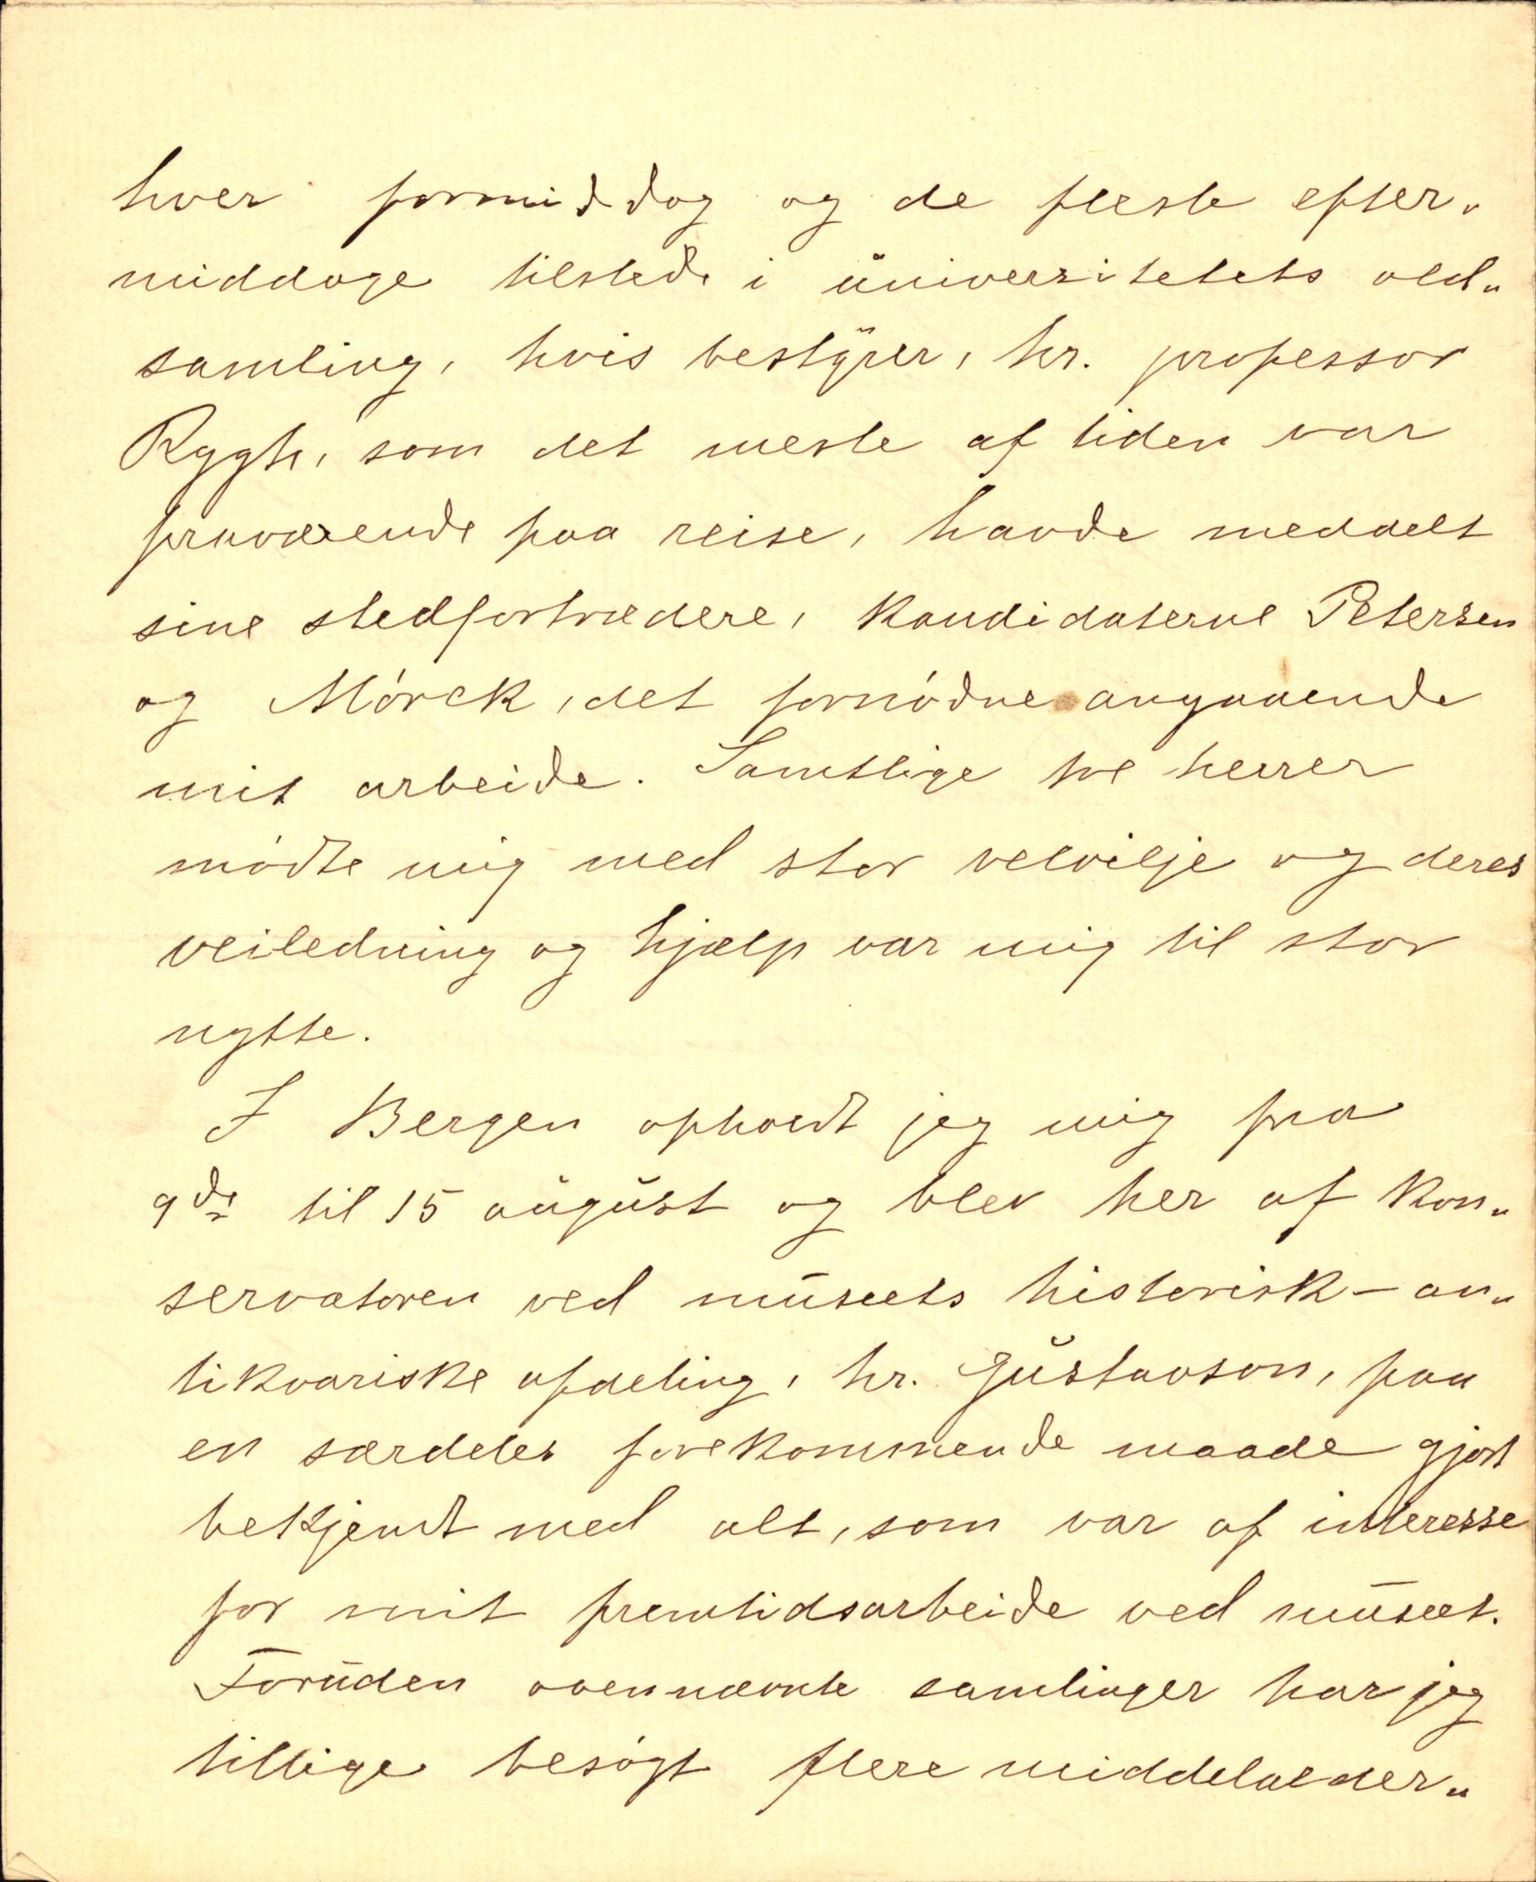 hver formiddag og de fleste efter-
middage tilstede i universitetets old-
samling, hvis bestyrer, hr. professor
Rygh, som det meste af tiden var
fraværende paa reise, havde meddelt
sine stedfortrædere, kandidaterne Petersen
og Mórck, det fornódne angaaende
mit arbeide. Samtlige tre herrer
módte mig med stor velvilje og deres
veiledning og hjælp var mig til stor
nytte.
I Bergen opholdt jeg mig fra
9de til 15 august og blev her af kon-
servatoren ved museets historisk-an-
tikvariske afdeling, hr. Gustavson, paa
en særdeles forekommende maade gjort
bekjendt med alt, som var af interesse
for mit fremtidsarbeide ved museet.
Foruden ovennævnte samlinger har jeg
tillige besógt flere middelalder-